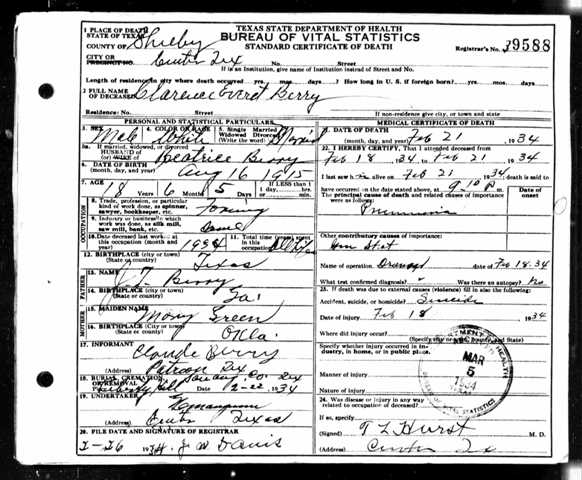 TEXAS STATE DEPARTMENT OF HEALTH
BUREAU OF VITAL STATISTICS
STANDARD CERTIFICATE OF DEATH
Registrar's No. 9588
1 PLACE OF DEATH
STATE OF TEXAS
COUNTY OF Shelby
CITY OR
PRECINCT NO. Center Tex No. Street
If in an Institution, give name of Institution instead of Street and No.
Length of residence in city where death occurred yrs. mos. days? How long in U. S. if foreign born? yrs. mos. days
2 FULL NAME
OF DECEASED Clarence Everet Berry
Residence: No. Street If non-residence give city, or town and state
PERSONAL AND STATISTICAL PARTICULARS
3. SEX Male
4. COLOR OR RACE White
5. Single Married
Widowed Divorced
(Write the word) Married
5a. If married, widowed, or divorced
HUSBAND OF
(or) WIFE of Beatrice Berry
6. DATE OF BIRTH
(month, day, and year) Aug 16 1915
7. AGE 18 6 5 days If LESS than 1
day, hrs.
or min.
OCCUPATION
8. Trade, profession, or particular
kind of work done, as spinner,
sawyer, bookkeeper, etc. Farming
9. Industry or business in which
work was done, as silk mill,
saw mill, bank, etc.
10. Date deceased last worked at
this occupation (month and
year) 1934
11. Total time (years) spent in this
occupation All life
12. BIRTHPLACE (city or town)
(State or country) Texas
FATHER
13. NAME J. T. Berry
14. BIRTHPLACE (city or town)
(State or country) Ga.
MOTHER
15. MAIDEN NAME Mary Green
16. BIRTHPLACE (city or town)
(State or country) Okla.
17. INFORMANT Claude Berry
Patroon Tex
18. BURIAL, CREMATION
OR REMOVAL
Liberty Hill 2-22 1934
19. UNDERTAKER
Center Texas
20. FILE DATE AND SIGNATURE OF REGISTRAR
2-26 1934 J W Davis
MEDICAL CERTIFICATE OF DEATH
21. DATE OF DEATH
(month, day, and year) Feb 21 1934
22. I HEREBY CERTIFY, That I attended deceased
from Feb 18 34 to Feb 21 1934
I last saw h alive on Feb 21 1934 death is said to
have occurred on the date stated above, at 9-10 P m
The principal cause of death and related causes of importance
were as follows: Date of
onset
Pneumonia
Other contributory causes of importance:
Gun Shot
Name of operation Drainage date of Feb 18-34
What test confirmed diagnosis? Was an autopsy? No
23. If death was due to external causes (violence) fill in also the following:
Accident, suicide, or homicide? Suicide
Date of injury Feb 18 1934
Where did injury occur?
(Specify city or town, county and State)
Specify whether injury occurred in
industry, in home, or in public place.
Manner of injury
Nature of injury
24. Was disease or injury in any way
related to occupation of deceased?
If so, specify
(Signed) T L Hurst M. D.
Center Tex
MAR
5
1934
VITAL STATISTICS